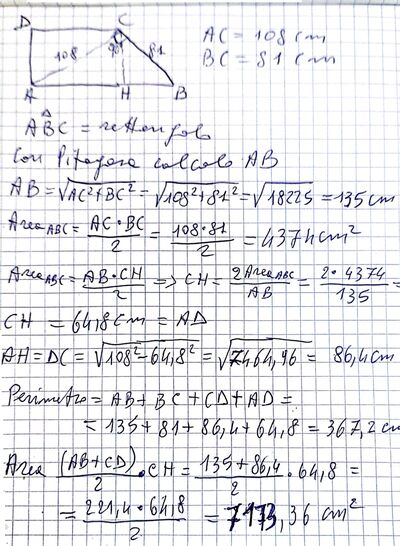 D C
AC = 108 cm
108 90° 81
BC = 81 cm
A H B
ABC = rettangolo
Con Pitagora calcolo AB
AB = √AC²+BC² = √108²+81² = √18225 = 135 cm
Area ABC = AC·BC/2 = 108·81/2 = 4374 cm²
Area ABC = AB·CH/2 => CH = 2 Area ABC/AB = 2·4374/135 =
CH = 64,8 cm = AD
AH = DC = √108²-64,8² = √7464,96 = 86,4 cm
Perimetro = AB + BC + CD + AD =
= 135 + 81 + 86,4 + 64,8 = 367,2 cm
Area (AB+CD)/2 · CH = 135+86,4/2 · 64,8 =
= 221,4·64,8/2 = 7173,36 cm²